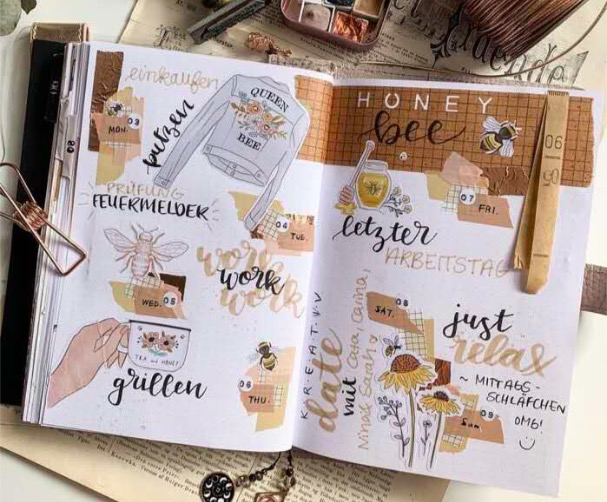 einkaufen
putzen
03
MON.
QUEEN
BEE
PRÜFUNG
FEUERMELDER
04
TUE.
work
work
work
WED. 05
TEA and HONEY
grillen
06
THU.
HONEY
bee
06
07
FRI.
letzter
ARBEITSTAG
KREATIV
date
mit Cara, Carina,
Nina & Sarah
08
SAT.
just
relax
~ MITTAGS-
SCHLÄFCHEN
OMG!
09
SUN.